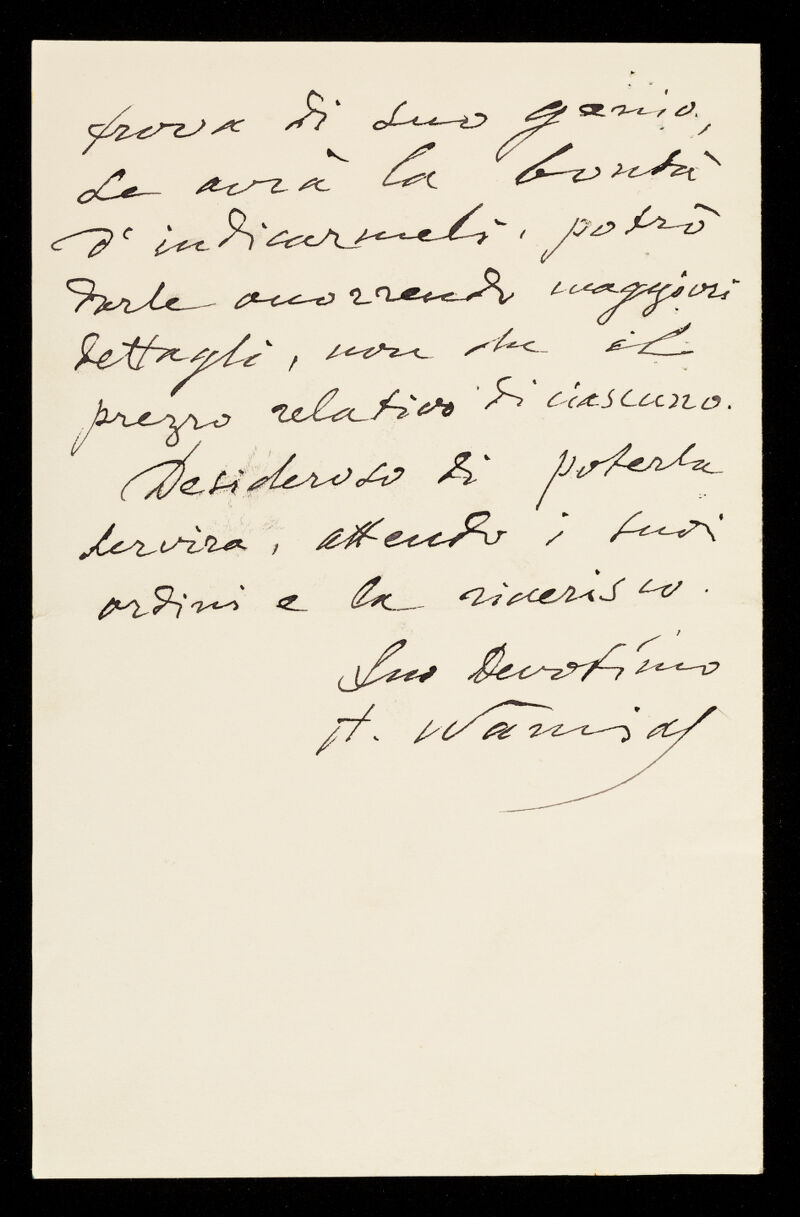 trova di suo genio,
se avrà la bontà
d'indicarmeli, potrò
darle occorrendo maggiori
dettagli, non che il
prezzo relativo di ciascuno.
Desideroso di poterla
servire, attendo i suoi
ordini e la riverisco.
Suo Devotimo